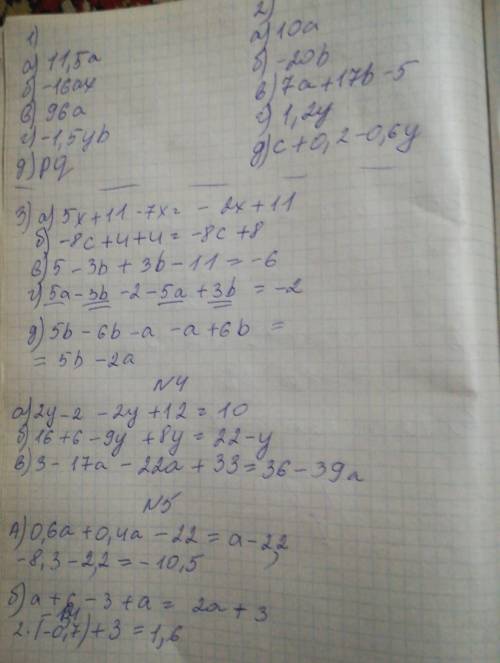 1)
а) 11,5a
б) -16ax
в) 96a
г) -1,5yb
д) pq
2)
а) 10a
б) -20b
в) 7a+17b-5
г) 1,2y
д) c+0,2-0,6y
3) а) 5x+11-7x= -2x+11
б) -8c+4+4= -8c+8
в) 5-3b+3b-11=-6
г) 5a-3b-2-5a+3b=-2
д) 5b-6b-a-a+6b=
=5b-2a
N4
а) 2y-2-2y+12=10
б) 16+6-9y+8y=22-y
в) 3-17a-22a+33=36-39a
N5
А) 0,6a+0,4a-22=a-2,2
-8,3-2,2=-10,5
б) a+6-3+a= 2a+3
2·(-0,7)+3=1,6